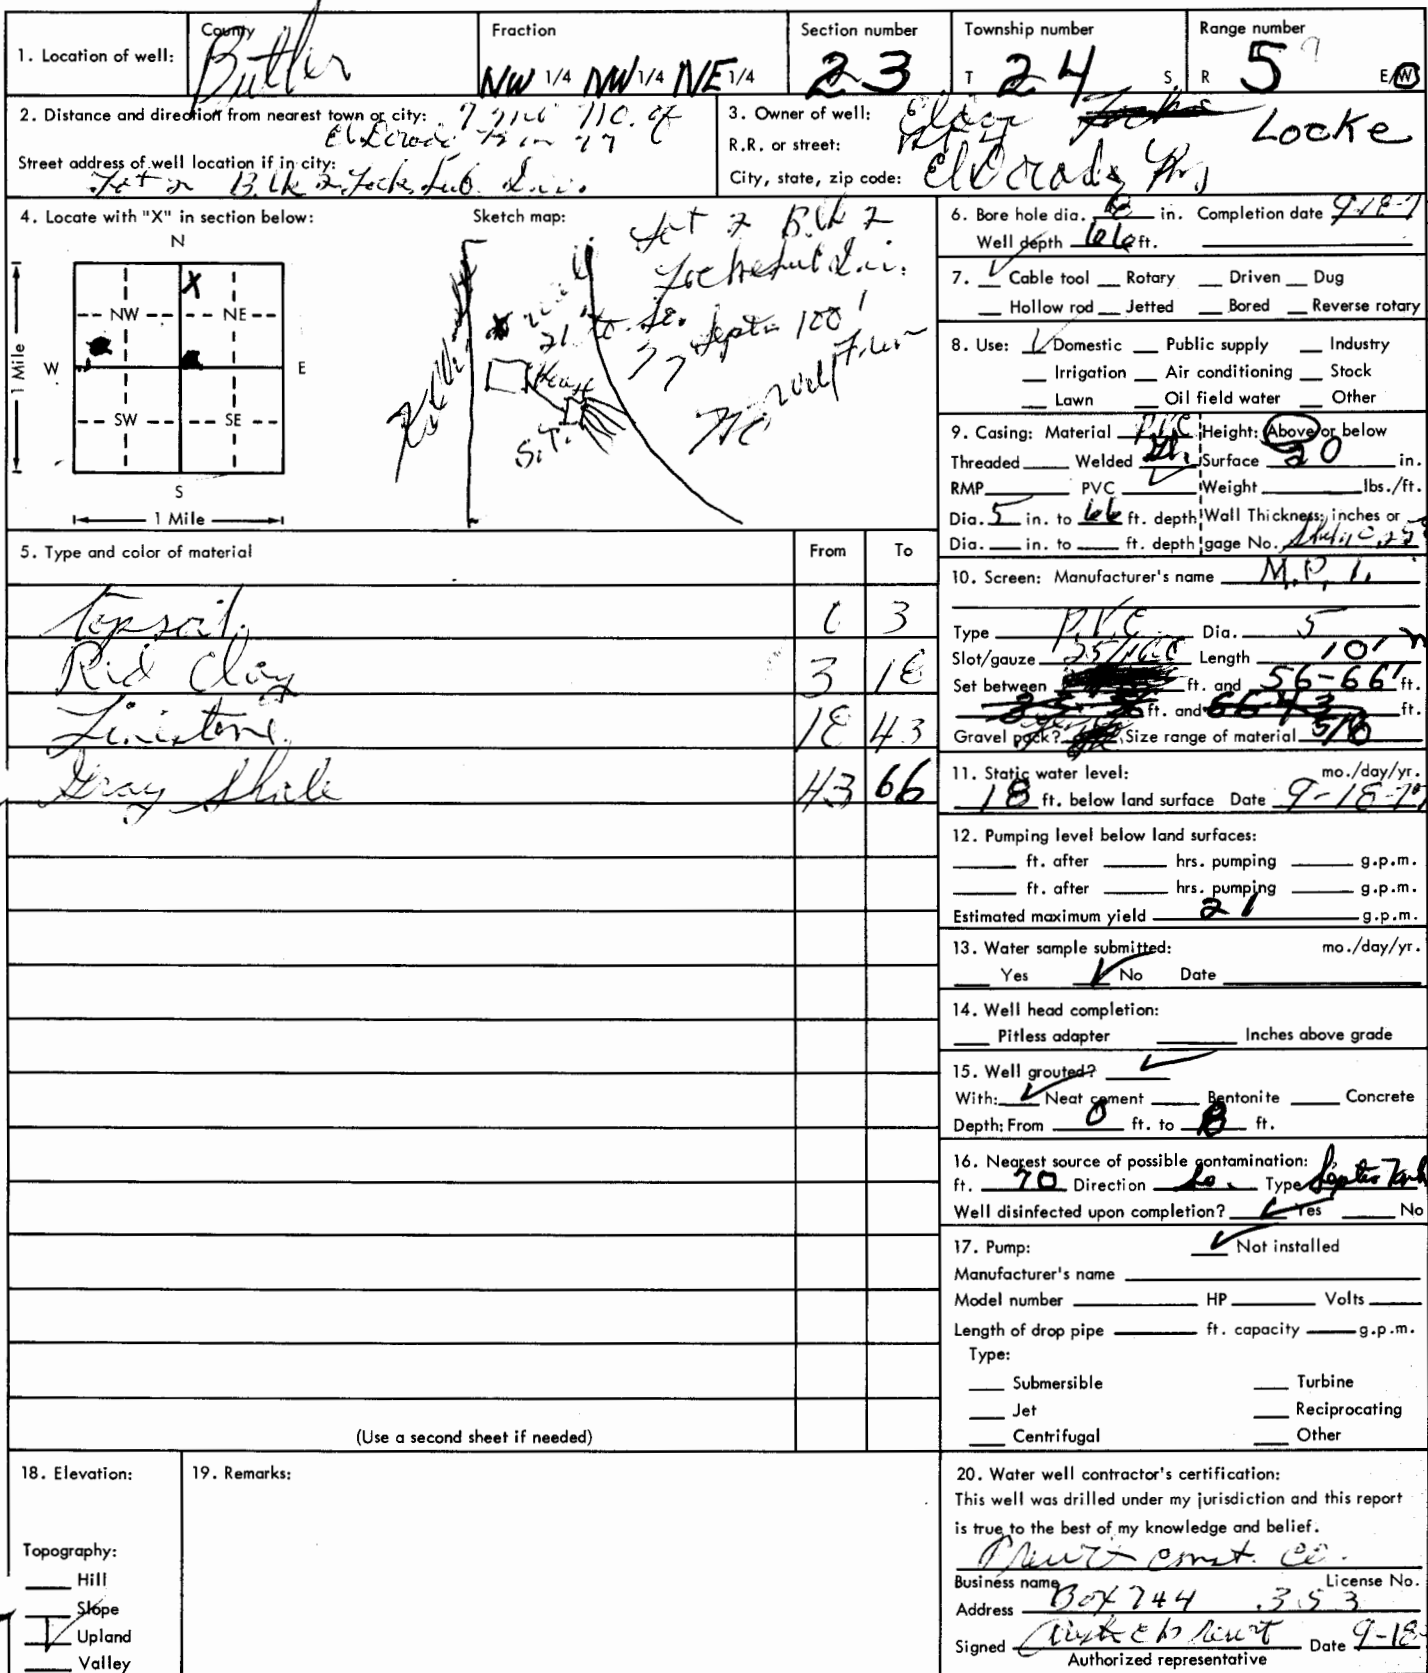 1. Location of well: County Butler Fraction NW 1/4 NW 1/4 NE 1/4 Section number 23 Township number T 24 S Range number R 5 E/W
2. Distance and direction from nearest town or city: of
El Dorado 77
Street address of well location if in city:
Lot 2 Blk 2 Sub.
3. Owner of well: Locke
R.R. or street:
City, state, zip code: El Dorado
4. Locate with "X" in section below:
N
X
NW NE
W E
SW SE
S
1 Mile
1 Mile
Sketch map:
Lot 2 Blk 2
Septic 100'
77
House
S.T.
5. Type and color of material From To
Topsoil 0 3
Red Clay 3 18
Limestone 18 43
Gray Shale 43 66
(Use a second sheet if needed)
6. Bore hole dia. in. Completion date 9-18-7
Well depth 66 ft.
7. Cable tool Rotary Driven Dug
Hollow rod Jetted Bored Reverse rotary
8. Use: Domestic Public supply Industry
Irrigation Air conditioning Stock
Lawn Oil field water Other
9. Casing: Material P.V.C Height: Above or below
Threaded Welded Surface 20 in.
RMP PVC Weight lbs./ft.
Dia. 5 in. to 66 ft. depth Wall Thickness: inches or
Dia. in. to ft. depth gage No.
10. Screen: Manufacturer's name M.P.I.
Type P.V.C Dia. 5
Slot/gauze Length 10'
Set between ft. and 56-66' ft.
ft. and ft.
Gravel pack? Size range of material
11. Static water level: mo./day/yr.
18 ft. below land surface Date 9-18-7
12. Pumping level below land surfaces:
ft. after hrs. pumping g.p.m.
ft. after hrs. pumping g.p.m.
Estimated maximum yield 21 g.p.m.
13. Water sample submitted: mo./day/yr.
Yes No Date
14. Well head completion:
Pitless adapter Inches above grade
15. Well grouted?
With: Neat cement Bentonite Concrete
Depth: From 0 ft. to ft.
16. Nearest source of possible contamination:
ft. 70 Direction So. Type Septic Tank
Well disinfected upon completion? Yes No
17. Pump: Not installed
Manufacturer's name
Model number HP Volts
Length of drop pipe ft. capacity g.p.m.
Type:
Submersible Turbine
Jet Reciprocating
Centrifugal Other
18. Elevation:
Topography:
Hill
Slope
Upland
Valley
19. Remarks:
20. Water well contractor's certification:
This well was drilled under my jurisdiction and this report
is true to the best of my knowledge and belief.
Const. Co.
Business name License No.
Address Box 744 353
Signed Date 9-18
Authorized representative